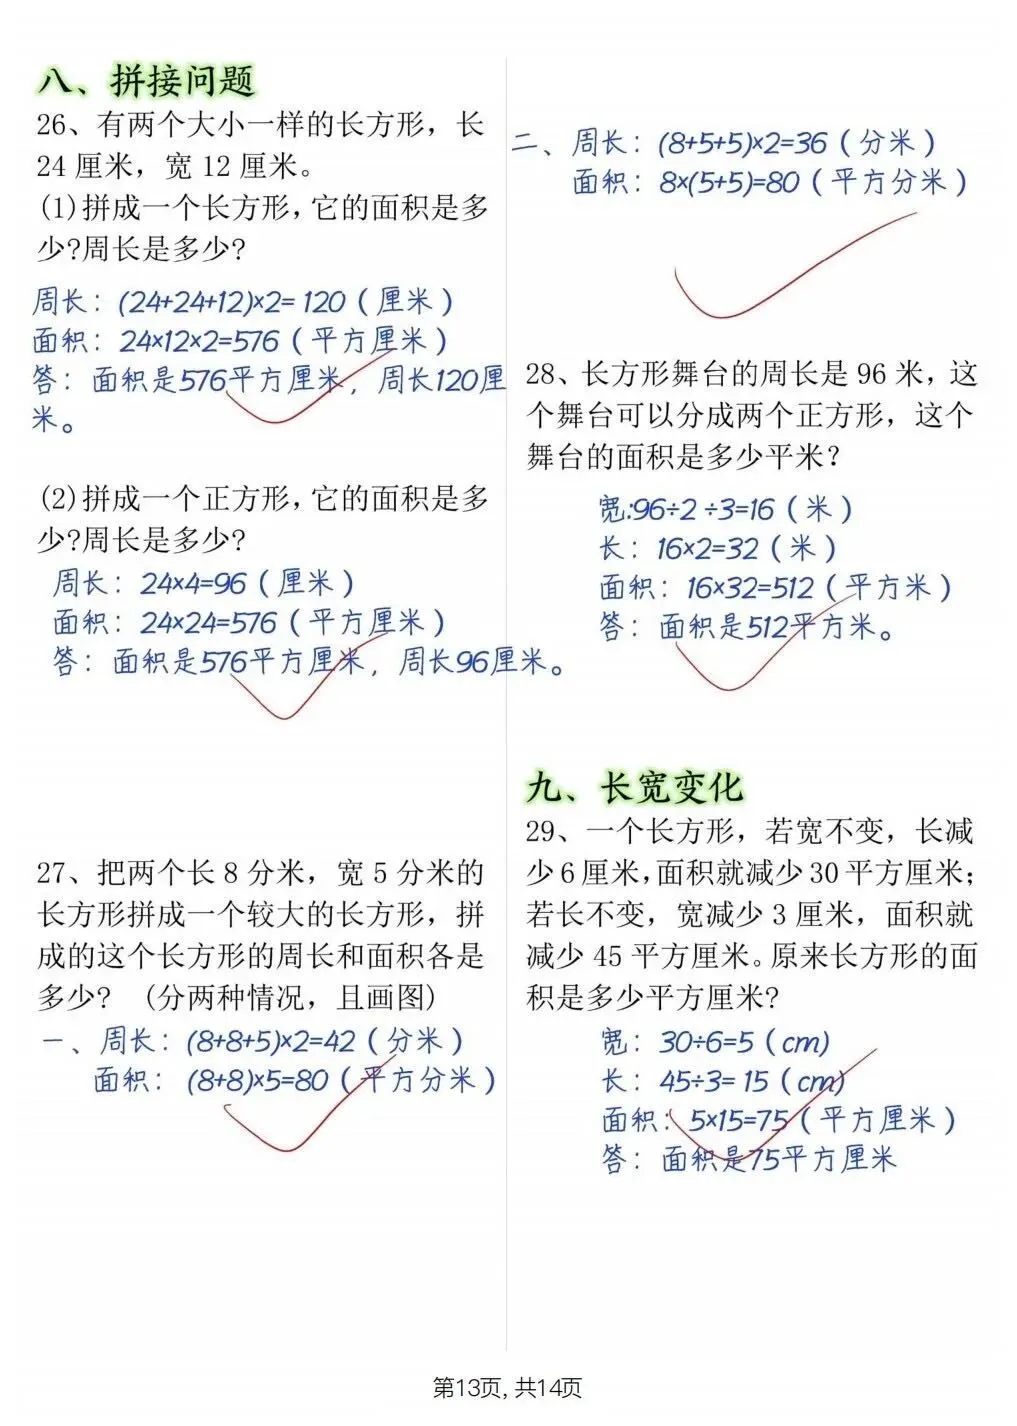 八、拼接问题
26、有两个大小一样的长方形，长
24厘米，宽12厘米。
(1)拼成一个长方形，它的面积是多
少?周长是多少?
周长：(24+24+12)×2= 120（厘米）
面积：24×12×2=576（平方厘米）
答：面积是576平方厘米，周长120厘
米。
(2)拼成一个正方形，它的面积是多
少?周长是多少?
周长：24×4=96（厘米）
面积：24×24=576（平方厘米）
答：面积是576平方厘米，周长96厘米。
27、把两个长8分米，宽5分米的
长方形拼成一个较大的长方形，拼
成的这个长方形的周长和面积各是
多少? (分两种情况，且画图)
一、周长：(8+8+5)×2=42（分米）
面积：(8+8)×5=80（平方分米）
二、周长：(8+5+5)×2=36（分米）
面积：8×(5+5)=80（平方分米）
28、长方形舞台的周长是96米，这
个舞台可以分成两个正方形，这个
舞台的面积是多少平米?
宽:96÷2÷3=16（米）
长：16×2=32（米）
面积：16×32=512（平方米）
答：面积是512平方米。
九、长宽变化
29、一个长方形，若宽不变，长减
少6厘米，面积就减少30平方厘米；
若长不变，宽减少3厘米，面积就
减少45平方厘米。原来长方形的面
积是多少平方厘米?
宽：30÷6=5（cm)
长：45÷3= 15（cm)
面积：5×15=75（平方厘米）
答：面积是75平方厘米
第13页, 共14页